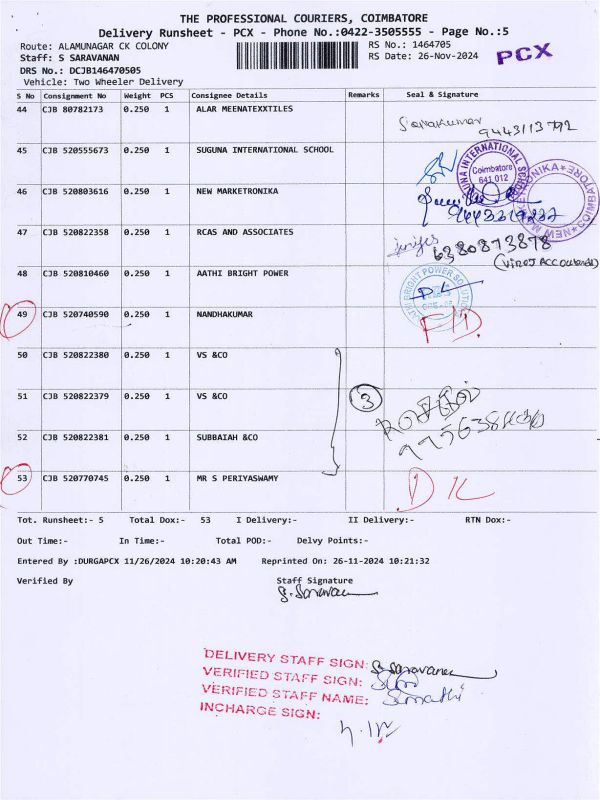 THE PROFESSIONAL COURIERS, COIMBATORE
Delivery Runsheet - PCX - Phone No.:0422-3505555 - Page No.:5
Route: ALAMUNAGAR CK COLONY
RS No.: 1464705
Staff: S SARAVANAN
RS Date: 26-Nov-2024
PCX
DRS No.: DCJB146470505
Vehicle: Two Wheeler Delivery
S No Consignment No Weight PCS Consignee Details Remarks Seal & Signature
44 CJB 80782173 0.250 1 ALAR MEENATEXXTILES
9443113792
45 CJB 520555673 0.250 1 SUGUNA INTERNATIONAL SCHOOL
Coimbatore
641 012
46 CJB 520803616 0.250 1 NEW MARKETRONIKA
47 CJB 520822358 0.250 1 RCAS AND ASSOCIATES
6380873878
48 CJB 520810460 0.250 1 AATHI BRIGHT POWER
49 CJB 520740590 0.250 1 NANDHAKUMAR
50 CJB 520822380 0.250 1 VS &CO
51 CJB 520822379 0.250 1 VS &CO
3
52 CJB 520822381 0.250 1 SUBBAIAH &CO
53 CJB 520770745 0.250 1 MR S PERIYASWAMY
Tot. Runsheet:- 5 Total Dox:- 53 I Delivery:- II Delivery:- RTN Dox:-
Out Time:- In Time:- Total POD:- Delvy Points:-
Entered By :DURGAPCX 11/26/2024 10:20:43 AM Reprinted On: 26-11-2024 10:21:32
Verified By Staff Signature
DELIVERY STAFF SIGN:
VERIFIED STAFF SIGN:
VERIFIED STAFF NAME:
INCHARGE SIGN: